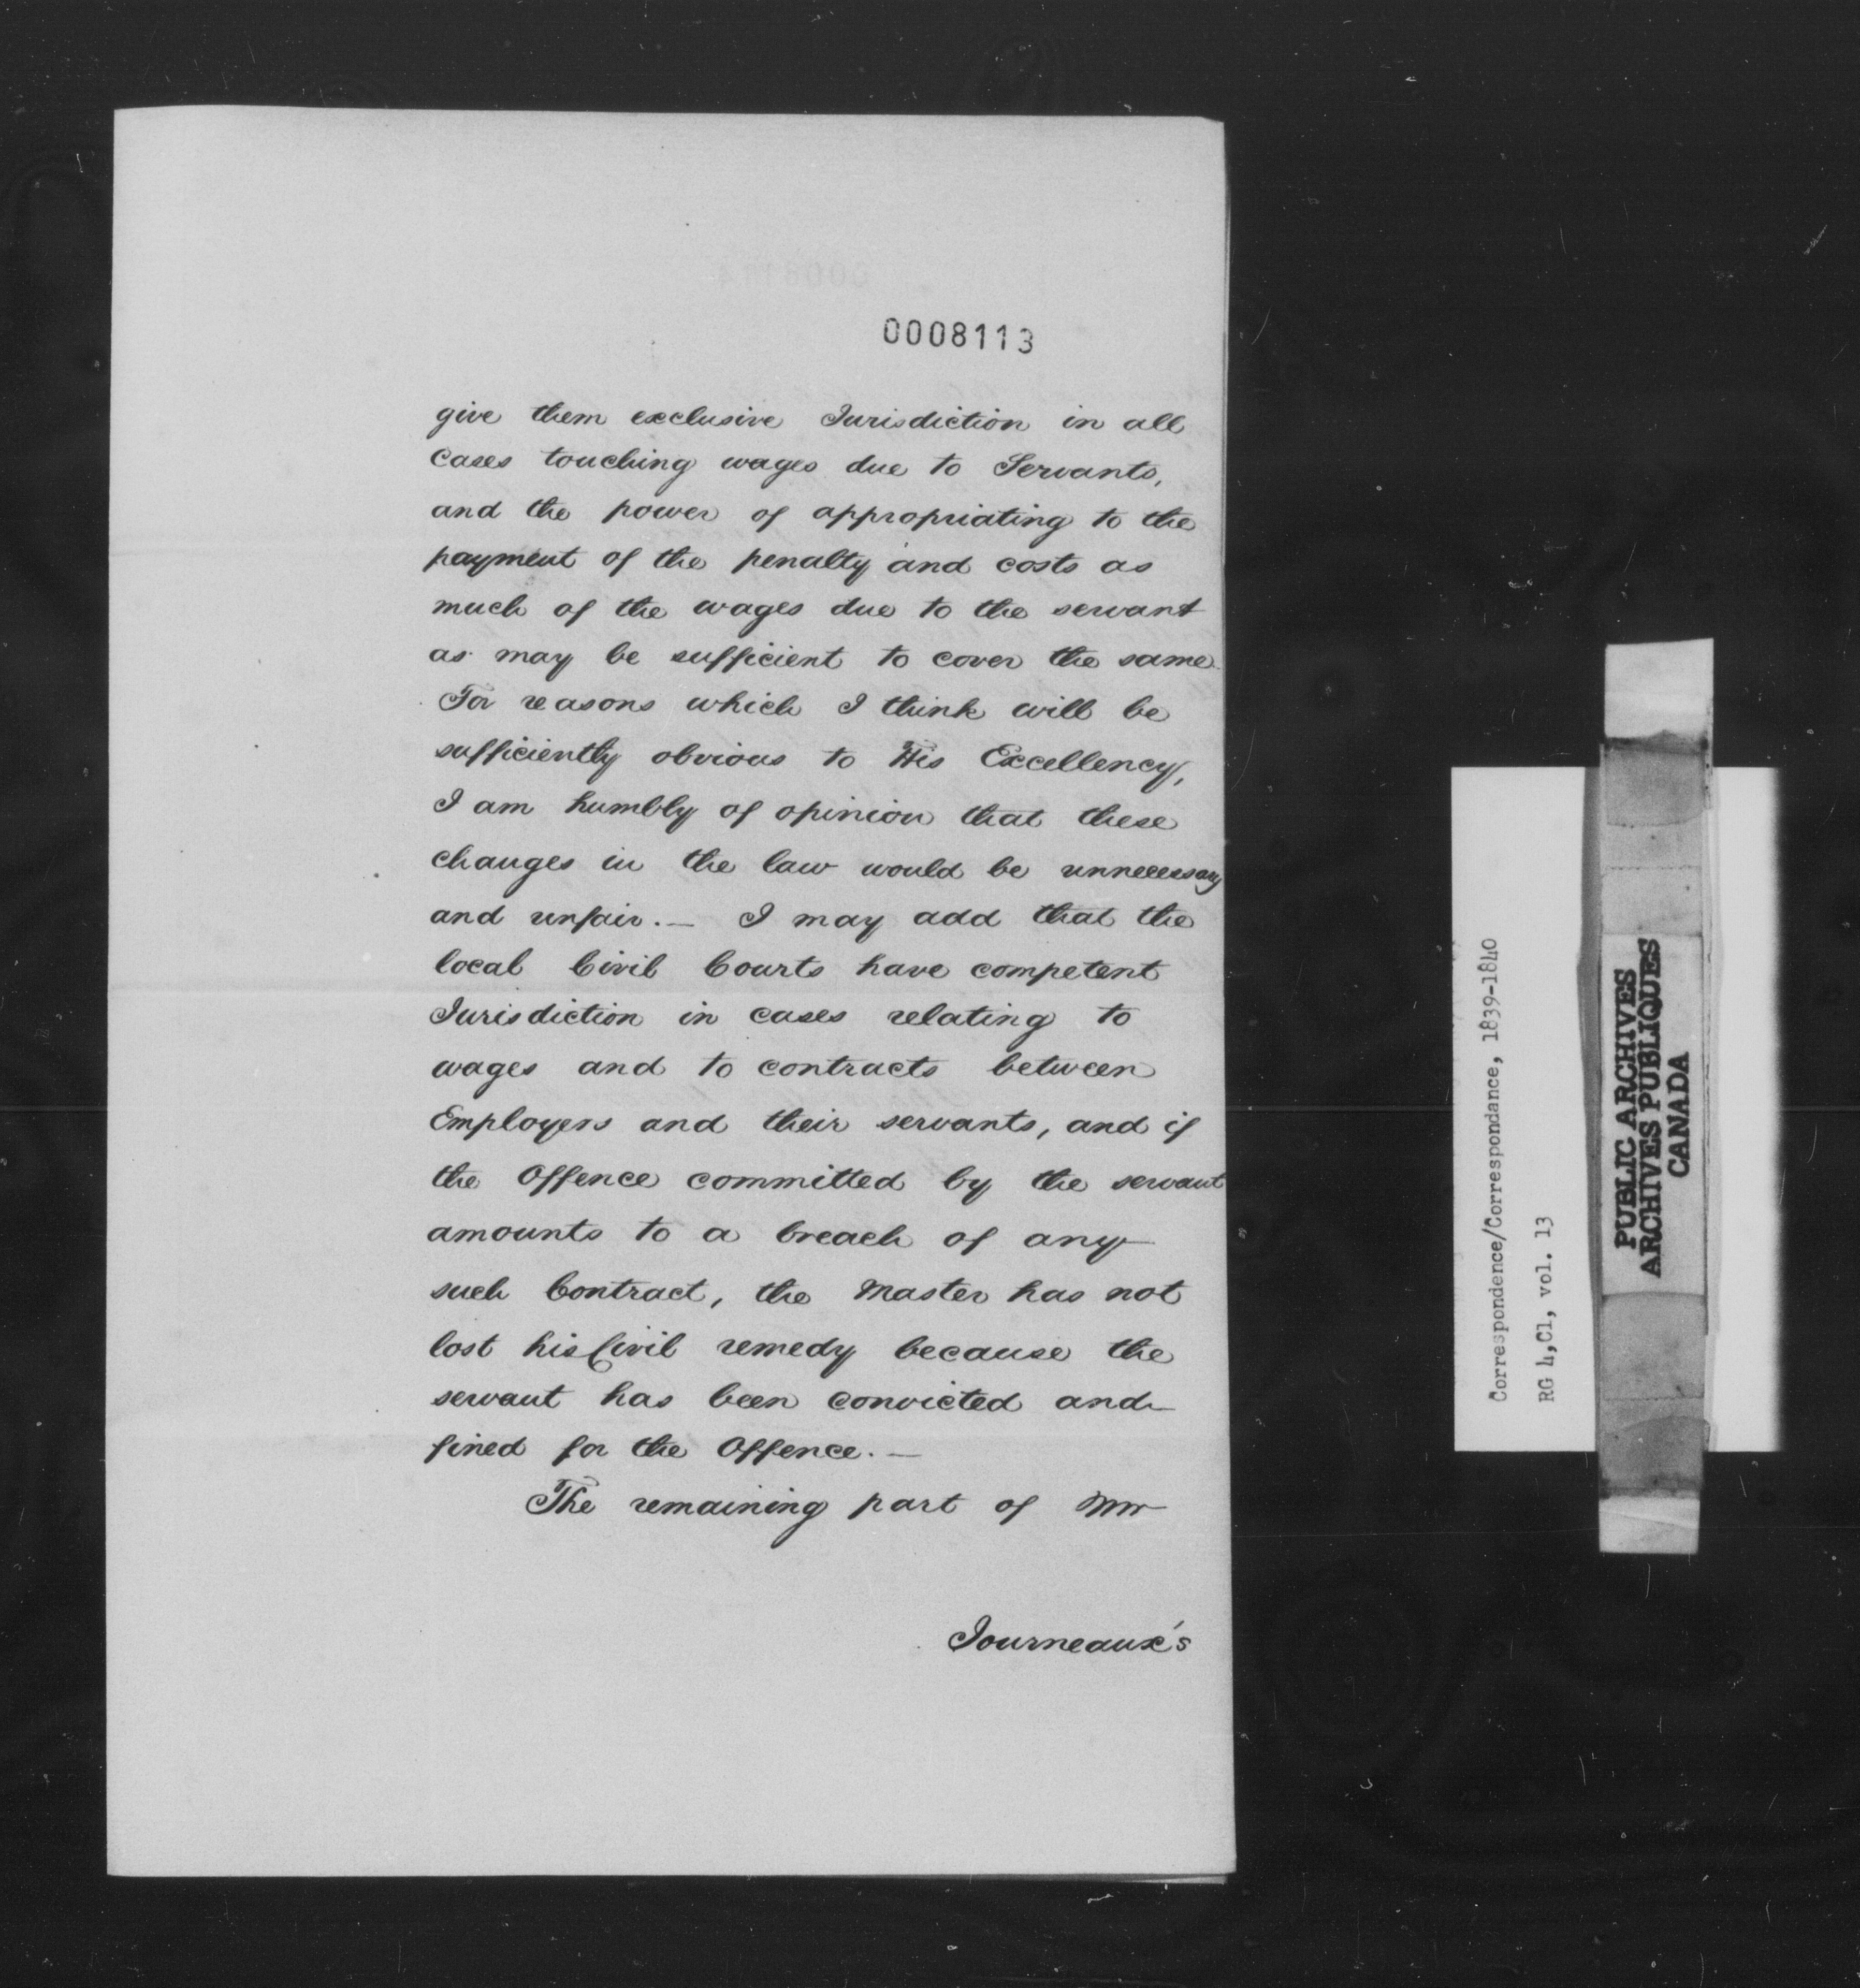 0008113
give them exclusive Jurisdiction in all
Cases touching wages due to Servants,
and the power of appropriating to the
payment of the penalty and costs as
much of the wages due to the servant
as may be sufficient to cover the same.
For reasons which I think will be
sufficiently obvious to His Excellency,
I am humbly of opinion that these
changes in the law would be unnecessary
and unfair. — I may add that the
local Civil Courts have competent
Jurisdiction in cases relating to
wages and to contracts between
Employers and their servants, and if
the Offence committed by the servant
amounts to a breach of any
such Contract, the Master has not
lost his Civil remedy because the
servant has been convicted and
fined for the Offence. —
The remaining part of Mr
Journeaux's
Correspondence/Correspondance, 1839-1840
RG 4,C1, vol. 13
PUBLIC ARCHIVES
ARCHIVES PUBLIQUES
CANADA